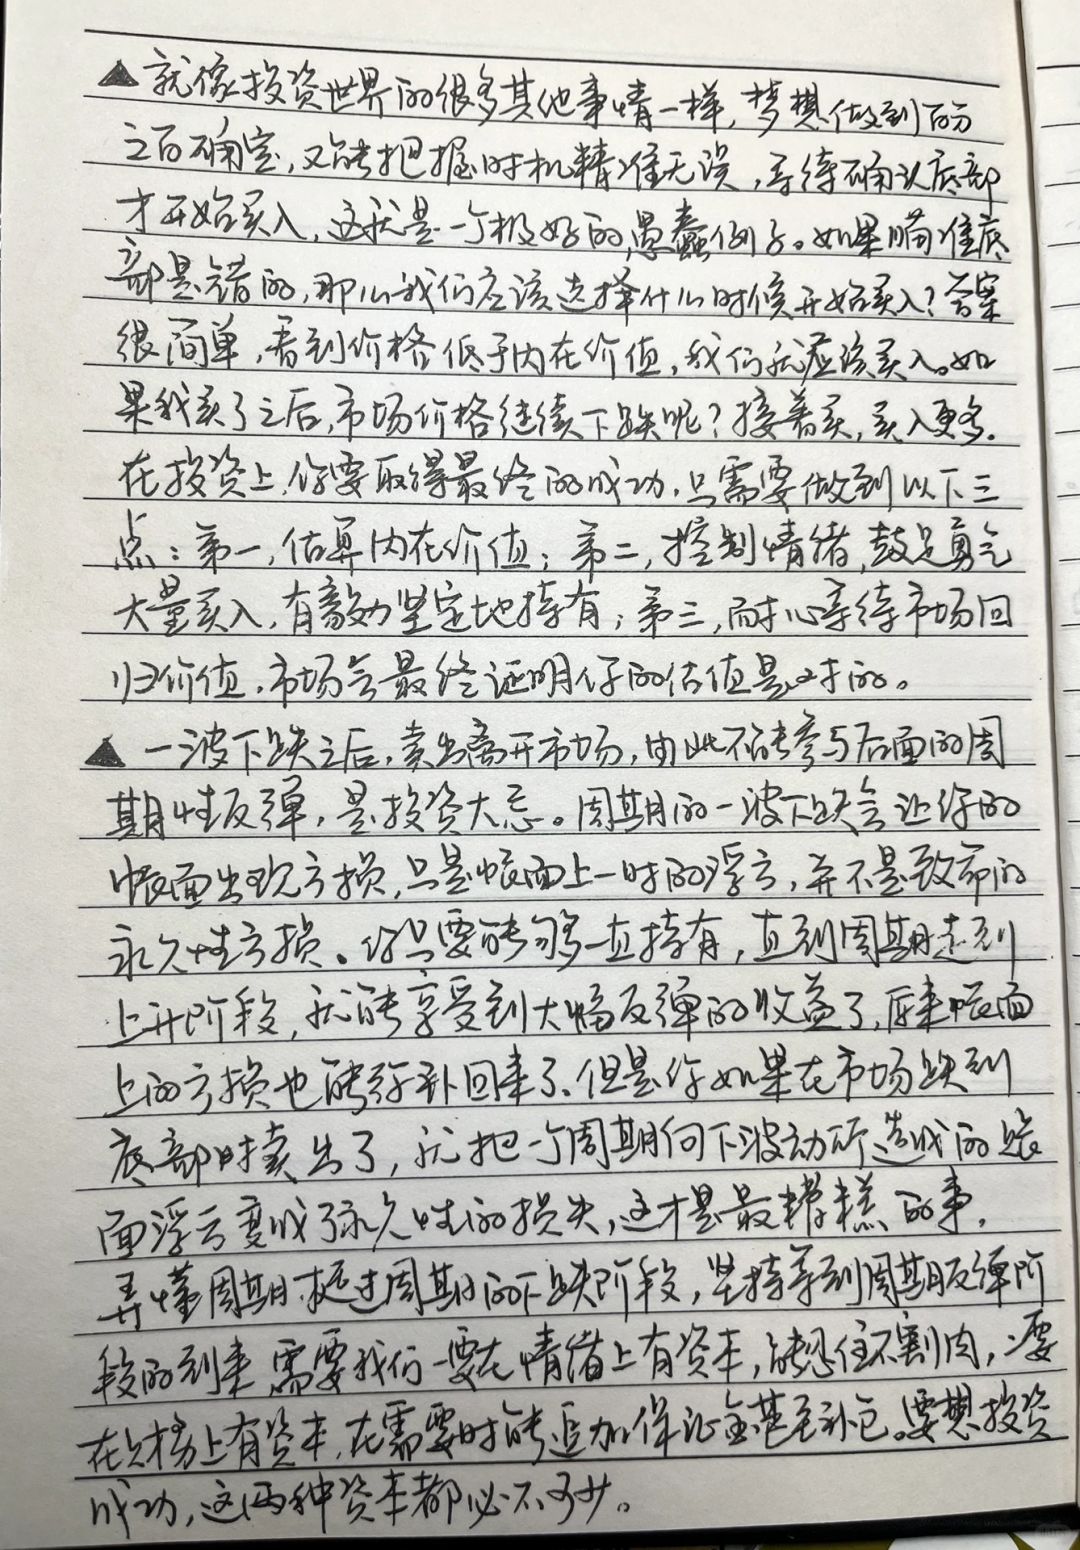 ▲就像投资世界的很多其他事情一样,梦想做到百分
之百确定,又能把握时机精准无误,等待确认底部
才开始买入,这就是一个极好的愚蠢例子。如果瞄准底
部是错的,那么我们应该选择什么时候开始买入?答案
很简单,看到价格低于内在价值,我们就应该买入。如
果我买了之后,市场价格继续下跌呢?接着买,买入更多.
在投资上,你要取得最终的成功,只需要做到以下三
点:第一,估算内在价值;第二,控制情绪,鼓足勇气
大量买入,有毅力坚定地持有;第三,耐心等待市场回
归价值,市场会最终证明你的估值是对的。
▲一波下跌之后,卖出离开市场,由此不能参与后面的周
期性反弹,是投资大忌。周期的一波下跌会让你的
帐面出现亏损,只是帐面上一时的浮亏,并不是致命的
永久性亏损。你只要能够一直持有,直到周期走到
上升阶段,就能享受到大幅反弹的收益了,原来帐面
上的亏损也能弥补回来了、但是你如果在市场跌到
底部时卖出了,就把一个周期向下波动所造成的账
面浮亏变成了永久性的损失,这才是最糟糕的事,
弄懂周期,挺过周期的下跌阶段,坚持等到周期反弹阶
段的到来,需要我们一要在情绪上有资本,能忍住不割肉,二要
在财务上有资本,在需要时能追加保证金甚至补仓。要想投资
成功,这两种资本都必不可少。